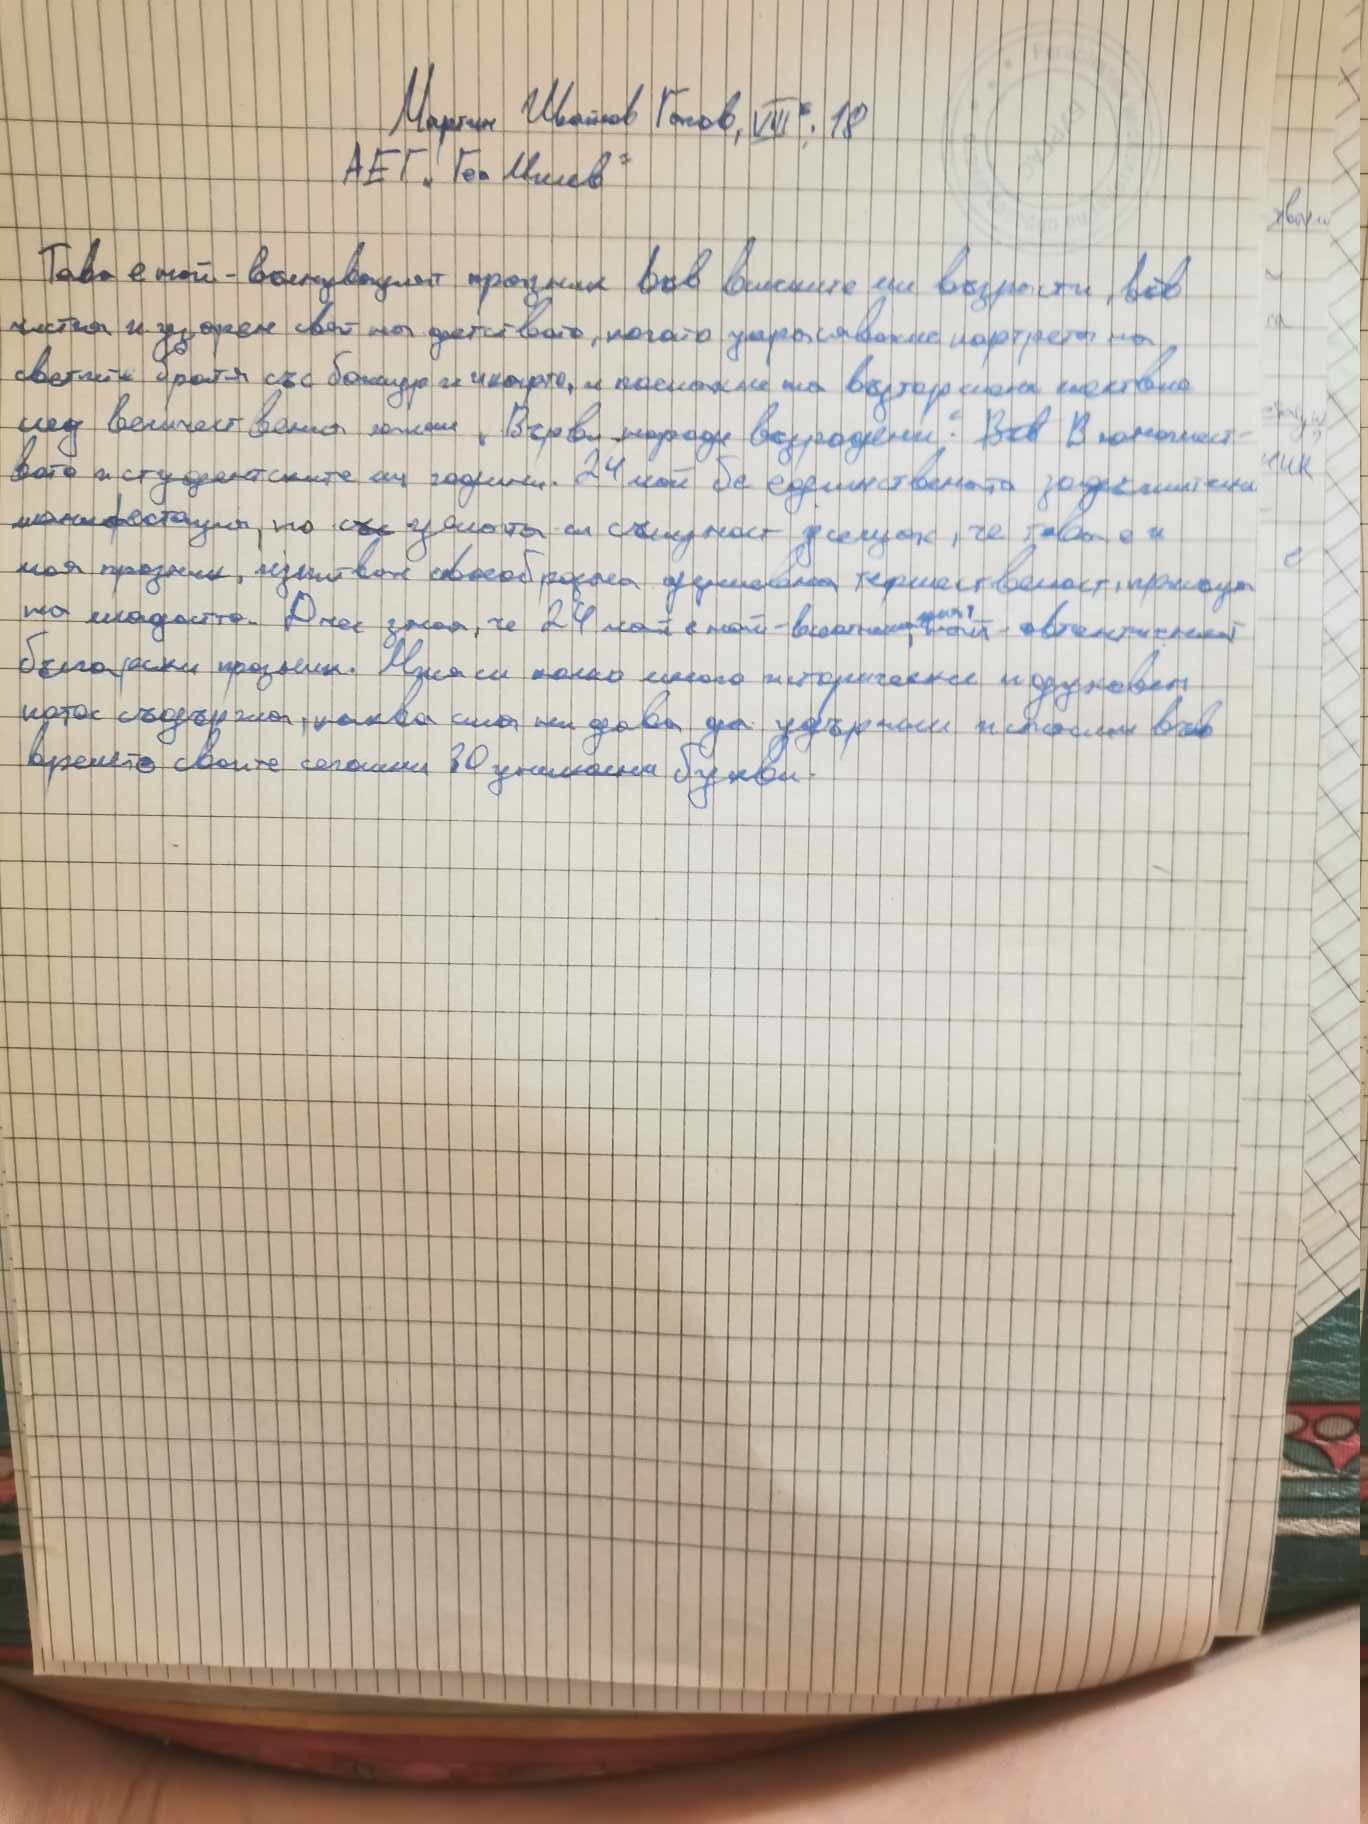 Мартин Ивайлов Ганов, VIIIв, 18
АЕГ „Гео Милев"
Това е най-вълнуващият празник във всичките ми възрасти, във
чистия и узорен свят на детството, когато украсявахме портрета на
светите братя със божури и и пеехме на възторжена шествие
след величествения химн „Върви народе възродени". Във В юношест-
вото и студентските ми години. 24 май бе единствената задължителна
манифестация, но със цялата си същност усещах, че това е и
моя празник, изпитвах своеобразна духовна тържественост, присъща
на младостта. Днес зная, че 24 май е най- най-автентичният
български празник. Мисля си колко много исторически и духовен
поток съдържа, каква сила ни дава да удържаме и спасим във
времето своите сегашни 30 уникални букви.